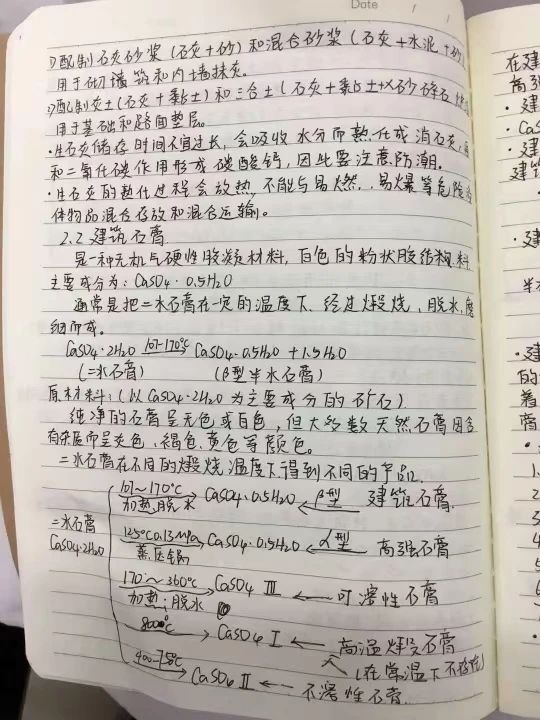 Date / /
1)配制石灰砂浆(石灰+砂)和混合砂浆(石灰+水泥+砂)
用于砌墙筑和内墙抹灰。
2)配制灰土(石灰+黏土)和三合土(石灰+黏土+砂碎石
用于基础和路面垫层。
·生石灰储存时间不宜过长,会吸收水分而熟化成消石灰,再
和二氧化碳作用形成碳酸钙,因此要注意防潮。
·生石灰的熟化过程会放热,不能与易燃、易爆等危险液
体物品混合存放和混合运输。
2.2 建筑石膏
是一种无机气硬性胶凝材料,白色的粉状胶结材料
主要成分为:CaSO4·0.5H2O
通常是把二水石膏在一定的温度下、经过煅烧、脱水,磨
细而成。
CaSO4·2H2O 107-170℃ CaSO4·0.5H2O + 1.5H2O
(二水石膏) (β型半水石膏)
原材料:(以CaSO4·2H2O为主要成分的矿石)
纯净的石膏呈无色或白色,但大多数天然石膏因含
有杂质而呈灰色、褐色、黄色等颜色。
二水石膏在不同的煅烧温度下,得到不同的产品.
107~170℃ 加热脱水 → CaSO4·0.5H2O ← β型 建筑石膏.
二水石膏 CaSO4·2H2O
125℃ 0.13MPa 蒸压锅 → CaSO4·0.5H2O ← α型 高强石膏
170~360℃ 加热:脱水 → CaSO4 III ← 可溶性石膏
800℃ → CaSO4 I ← 高温煅烧石膏
(在常温下不存在)
400-750℃ → CaSO4 II ← 不溶性石膏
在建
高强
·建
·CaS
·建
建筑
·建
半水
·建
的
着
1.
2.
3.
4.
5.
6